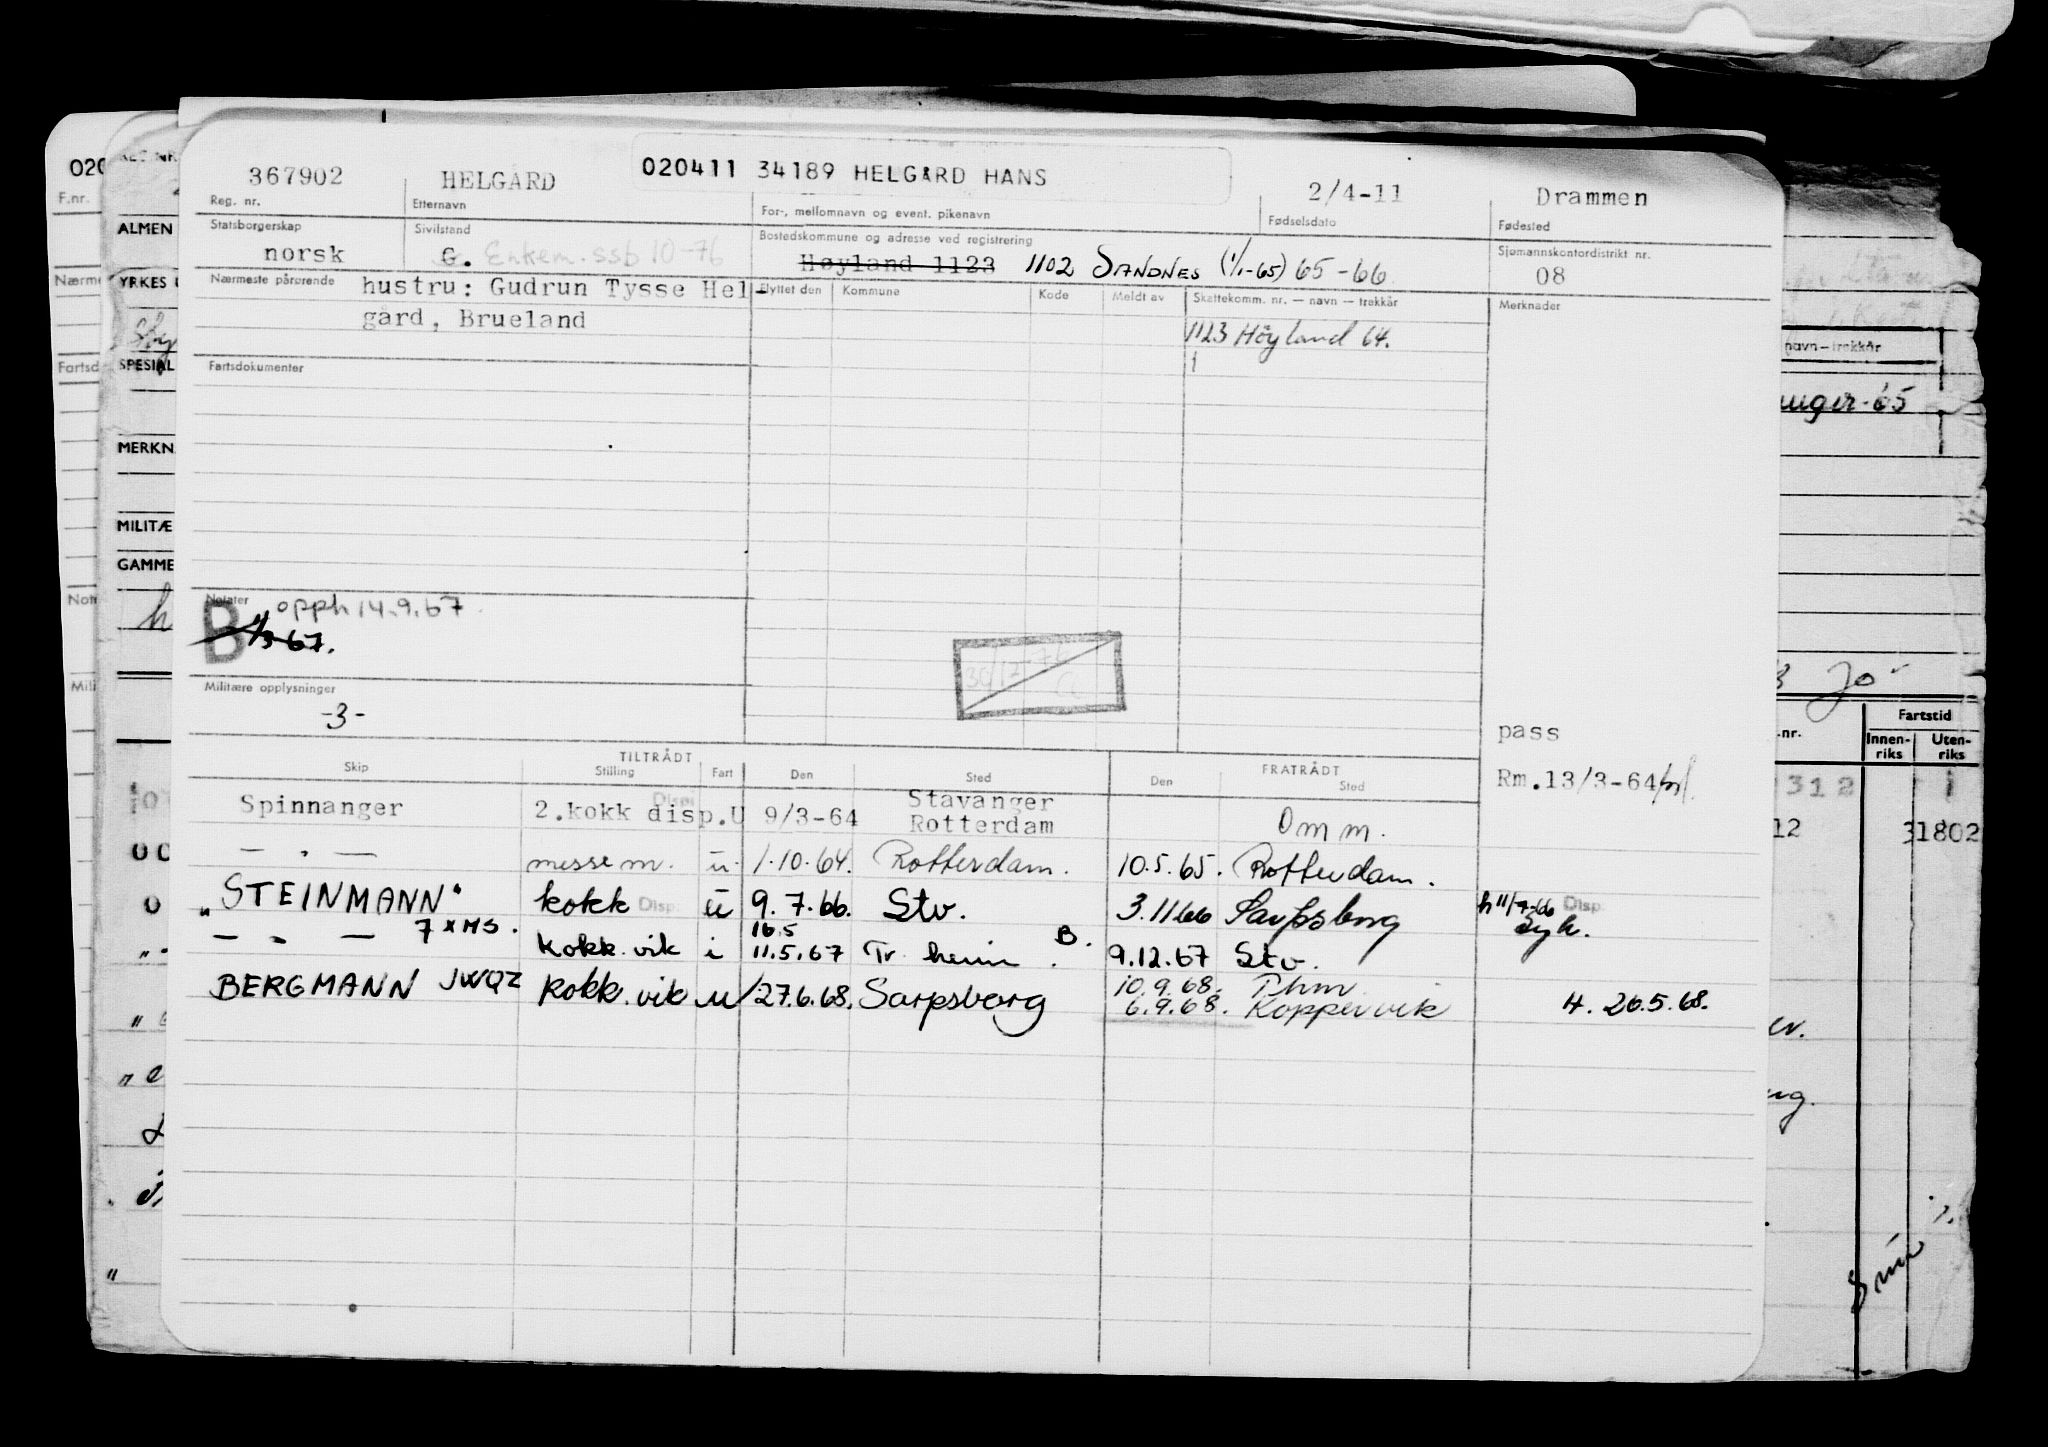 367902 HELGÅRD 020411 34189 HELGÅRD HANS 2/4-11 Drammen
Reg. nr. Etternavn For-, mellomnavn og event. pikenavn Fødselsdato Fødested
Statsborgerskap Sivilstand Bostedskommune og adresse ved registrering Sjømannskontordistrikt nr.
norsk G. Enkem. ssb 10-76 Høyland 1123 1102 SANDNES (1/1-65) 65-66 08
Nærmeste pårørende hustru: Gudrun Tysse Hel- Flyttet den Kommune Kode Meldt av Skattekomm. nr. — navn — trekkår Merknader
gård, Brueland
1123 Höyland 64.
Fartsdokumenter
Notater
B opph 14.9.67.
1/3 67.
30/12-76
Militære opplysninger
-3-
pass
Rm.13/3-64
TILTRÅDT FRATRÅDT
Skip Stilling Fart Den Sted Den Sted
Spinnanger 2.kokk disp.U 9/3-64 Stavanger
Rotterdam Omm.
— " — messem. u. 1.10.64. Rotterdam. 10.5.65. Rotterdam.
"STEINMANN" kokk Disp. u 9.7.66. Stv. 3.11 66 Sarpsborg h 11/7-66 Disp.
Syk.
— " — 7 x MS. kokk. vik i 16.5
11.5.67 Tr. heim. B. 9.12.67 Stv.
BERGMANN JWQZ kokk. vik u 27.6.68. Sarpsborg 10.9.68.
6.9.68. Koppervik H. 26.5.68.
020
F.nr.
Nærm
Fartsd
Mili
ALMEN
YRKES
SPESIAL
MERKN
MILITÆ
GAMME
navn—trekkår
anger-65
Jo-
.nr. Fartstid
Innen-
riks Uten-
riks
312 1
12 31802